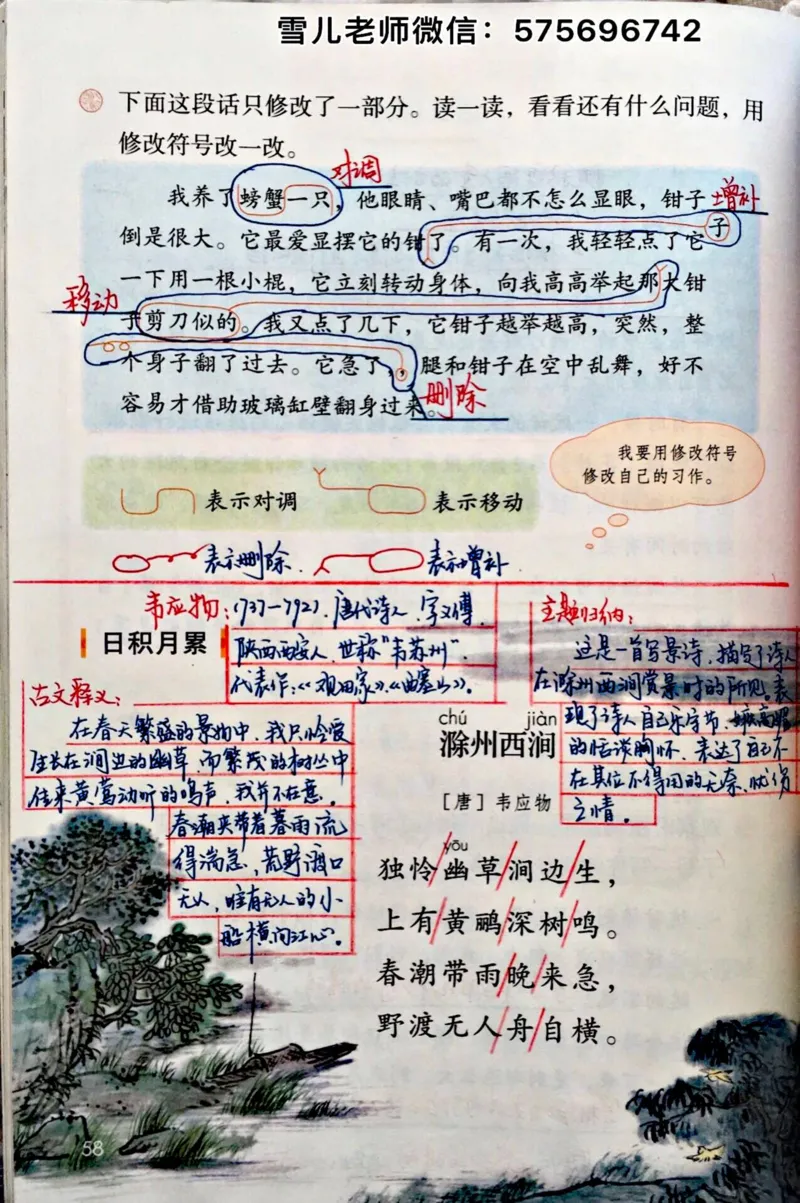 雪儿老师微信：575696742
下面这段话只修改了一部分。读一读，看看还有什么问题，用
修改符号改一改。
对调
我养了螃蟹一只，他眼睛、嘴巴都不怎么显眼，钳子
增补
子
倒是很大。它最爱显摆它的钳了。有一次，我轻轻点了它
一下用一根小棍，它立刻转动身体，向我高高举起那大钳
移动
子剪刀似的。我又点了几下，它钳子越举越高，突然，整
个身子翻了过去。它急了，，腿和钳子在空中乱舞，好不
容易才借助玻璃缸壁翻身过来。
删除
我要用修改符号
修改自己的习作。
表示对调
表示移动
表示删除
表示增补
韦应物：(737-792)，唐代诗人，字义博，
陕西西安人，世称"韦苏州"。
代表作：《观田家》《西塞山》。
主题归纳：
这是一首写景诗，描写了诗人
在滁州西涧赏景时的所见。表
现了诗人自己乐守节、嫉高媚
的恬淡胸怀，表达了自己不
在其位不得用的无奈、忧伤
之情。
日积月累
古文释义：
在春天繁盛的景物中，我只怜爱
生长在涧边的幽草，而繁茂的树丛中
传来黄莺动听的鸣声，我并不在意。
春潮夹带着暮雨流
得湍急，荒野渡口
无人，唯有无人的小
船横向江心。
chú jiàn
滁州西涧
［唐］韦应物
yōu
独怜/幽草/涧边/生，
上有/黄鹂/深树/鸣。
春潮带雨/晚/来急，
野渡无人/舟/自横。
58